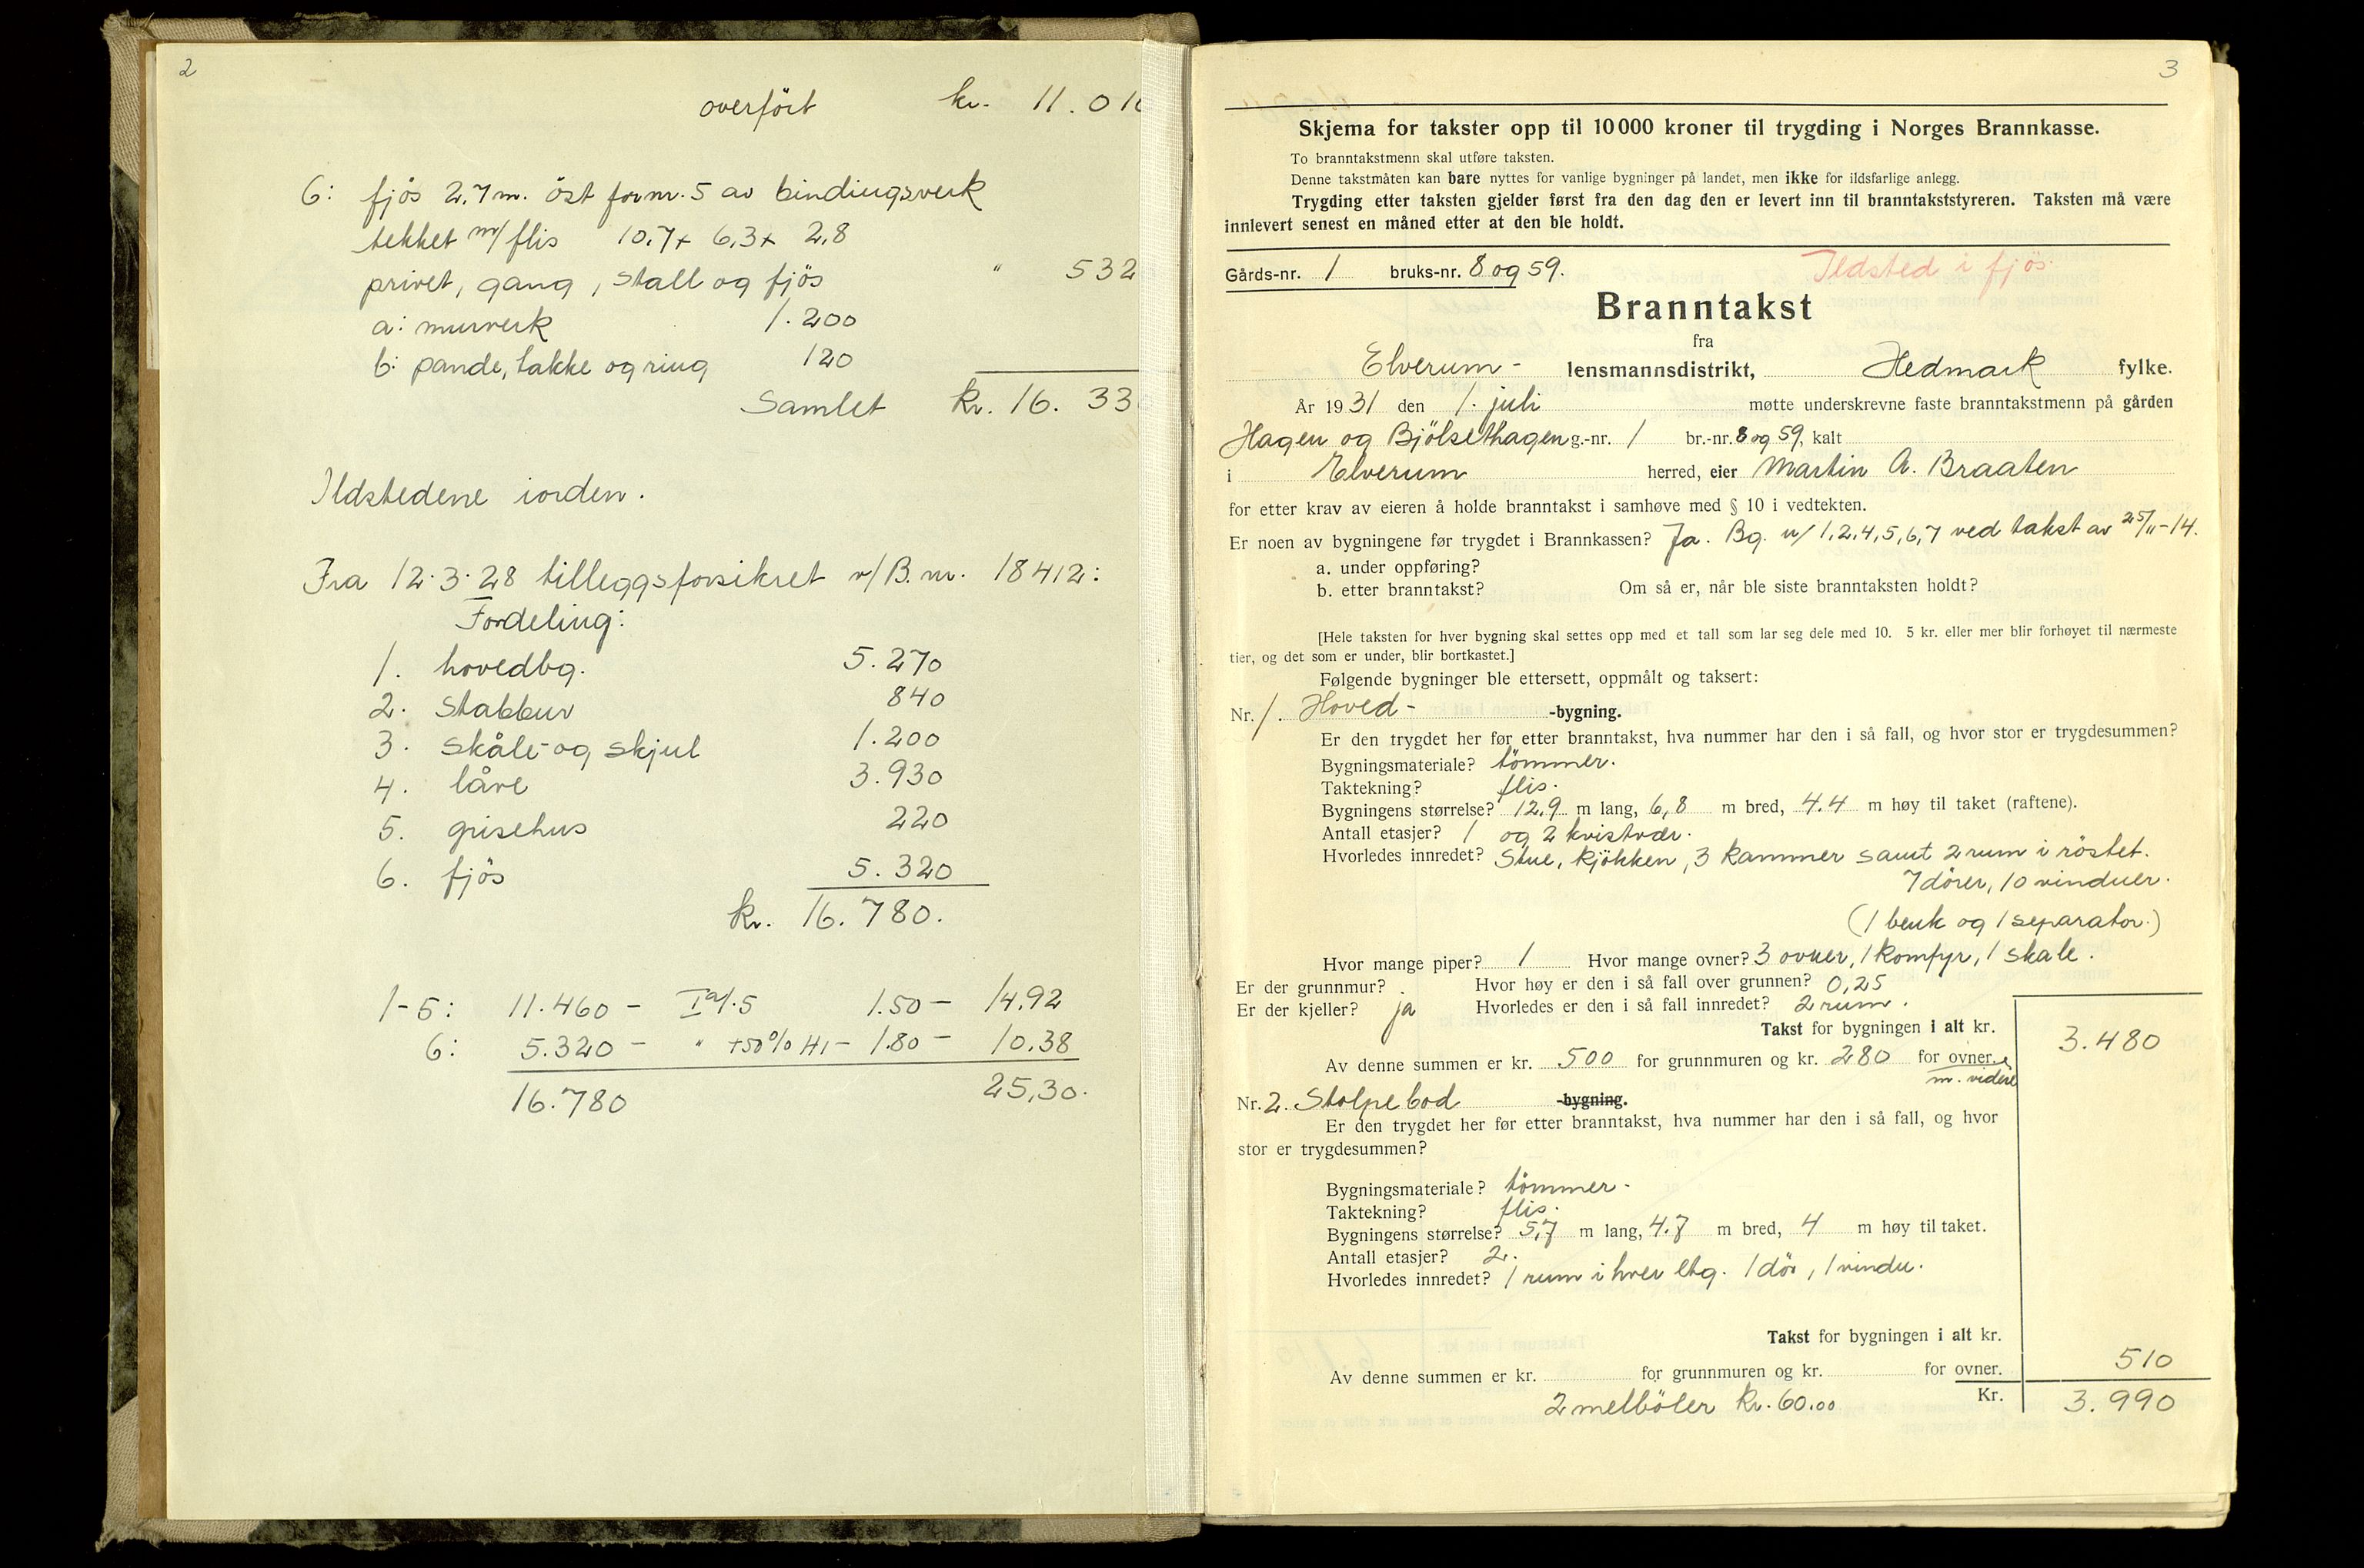 2
overført kr. 11.010
6: fjös 2,7 m. öst for nr. 5 av bindingsverk
tekket m/flis 10,7 + 6,3 + 2,8
privet, gang, stall og fjös " 532
a: murverk 1.200
b: pande, takke og ring 120
Samlet kr. 16.33
Ildstedene iorden.
Fra 12.3.28 tilleggsforsikret v/B. nr. 18412:
Fordeling:
1. hovedbg. 5.270
2. stabbur 840
3. skåle- og skjul 1.200
4. låve 3.930
5. grisehus 220
6. fjös 5.320
kr. 16.780.
1-5: 11.460 - 1.50 - 14.92
6: 5.320 - " +50% H1 - 1.80 - 10.38
16.780 25,30.
3
Skjema for takster opp til 10000 kroner til trygding i Norges Brannkasse.
To branntakstmenn skal utføre taksten.
Denne takstmåten kan bare nyttes for vanlige bygninger på landet, men ikke for ildsfarlige anlegg.
Trygding etter taksten gjelder først fra den dag den er levert inn til branntakststyreren. Taksten må være
innlevert senest en måned etter at den ble holdt.
Gårds-nr. 1 bruks-nr. 8 og 59. Ildsted i fjös.
Branntakst
fra
Elverum - lensmannsdistrikt, Hedmark fylke.
År 1931 den 1. juli møtte underskrevne faste branntakstmenn på gården
Hagen og Bjölsethagen g.-nr. 1 br.-nr. 8 og 59, kalt
i Elverum herred, eier Martin A. Braaten
for etter krav av eieren å holde branntakst i samhøve med § 10 i vedtekten.
Er noen av bygningene før trygdet i Brannkassen? Ja. Bg. n/ 1,2,4,5,6,7 ved takst av 25/11-14.
a. under oppføring?
b. etter branntakst? Om så er, når ble siste branntaksten holdt?
[Hele taksten for hver bygning skal settes opp med et tall som lar seg dele med 10. 5 kr. eller mer blir forhøyet til nærmeste
tier, og det som er under, blir bortkastet.]
Følgende bygninger ble ettersett, oppmålt og taksert:
Nr. 1. Hoved- -bygning.
Er den trygdet her før etter branntakst, hva nummer har den i så fall, og hvor stor er trygdesummen?
Bygningsmateriale? tömmer.
Taktekning? flis.
Bygningens størrelse? 12,9 m lang, 6,8 m bred, 4.4 m høy til taket (raftene).
Antall etasjer? 1 og 2 kvistvær.
Hvorledes innredet? Stue, kjökken, 3 kammer samt 2 rum i röstet.
7 dörer, 10 vinduer.
(1 benk og 1 separator.)
Hvor mange piper? 1 Hvor mange ovner? 3 ovner, 1 komfyr, 1 skåle.
Er der grunnmur? Hvor høy er den i så fall over grunnen? 0,25
Er der kjeller? ja Hvorledes er den i så fall innredet? 2 rum.
Takst for bygningen i alt kr. 3.480
Av denne summen er kr. 500 for grunnmuren og kr. 280 for ovner
m. videre
Nr. 2. Stolpebod -bygning.
Er den trygdet her før etter branntakst, hva nummer har den i så fall, og hvor
stor er trygdesummen?
Bygningsmateriale? tömmer.
Taktekning? flis.
Bygningens størrelse? 5,7 m lang, 4.7 m bred, 4 m høy til taket.
Antall etasjer? 2.
Hvorledes innredet? 1 rum i hver etg. 1 dör, 1 vindu.
Takst for bygningen i alt kr. 510
Av denne summen er kr. for grunnmuren og kr. for ovner.
Kr. 3.990
2 melböler kr. 60.00